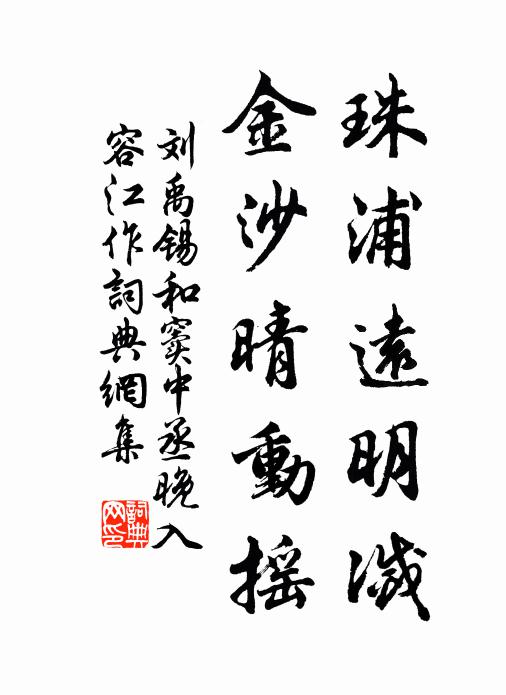 珠浦遠明滅
金沙晴動搖
刘禹锡和窦中丞晚入
容江作詞典網集
詞典
网印